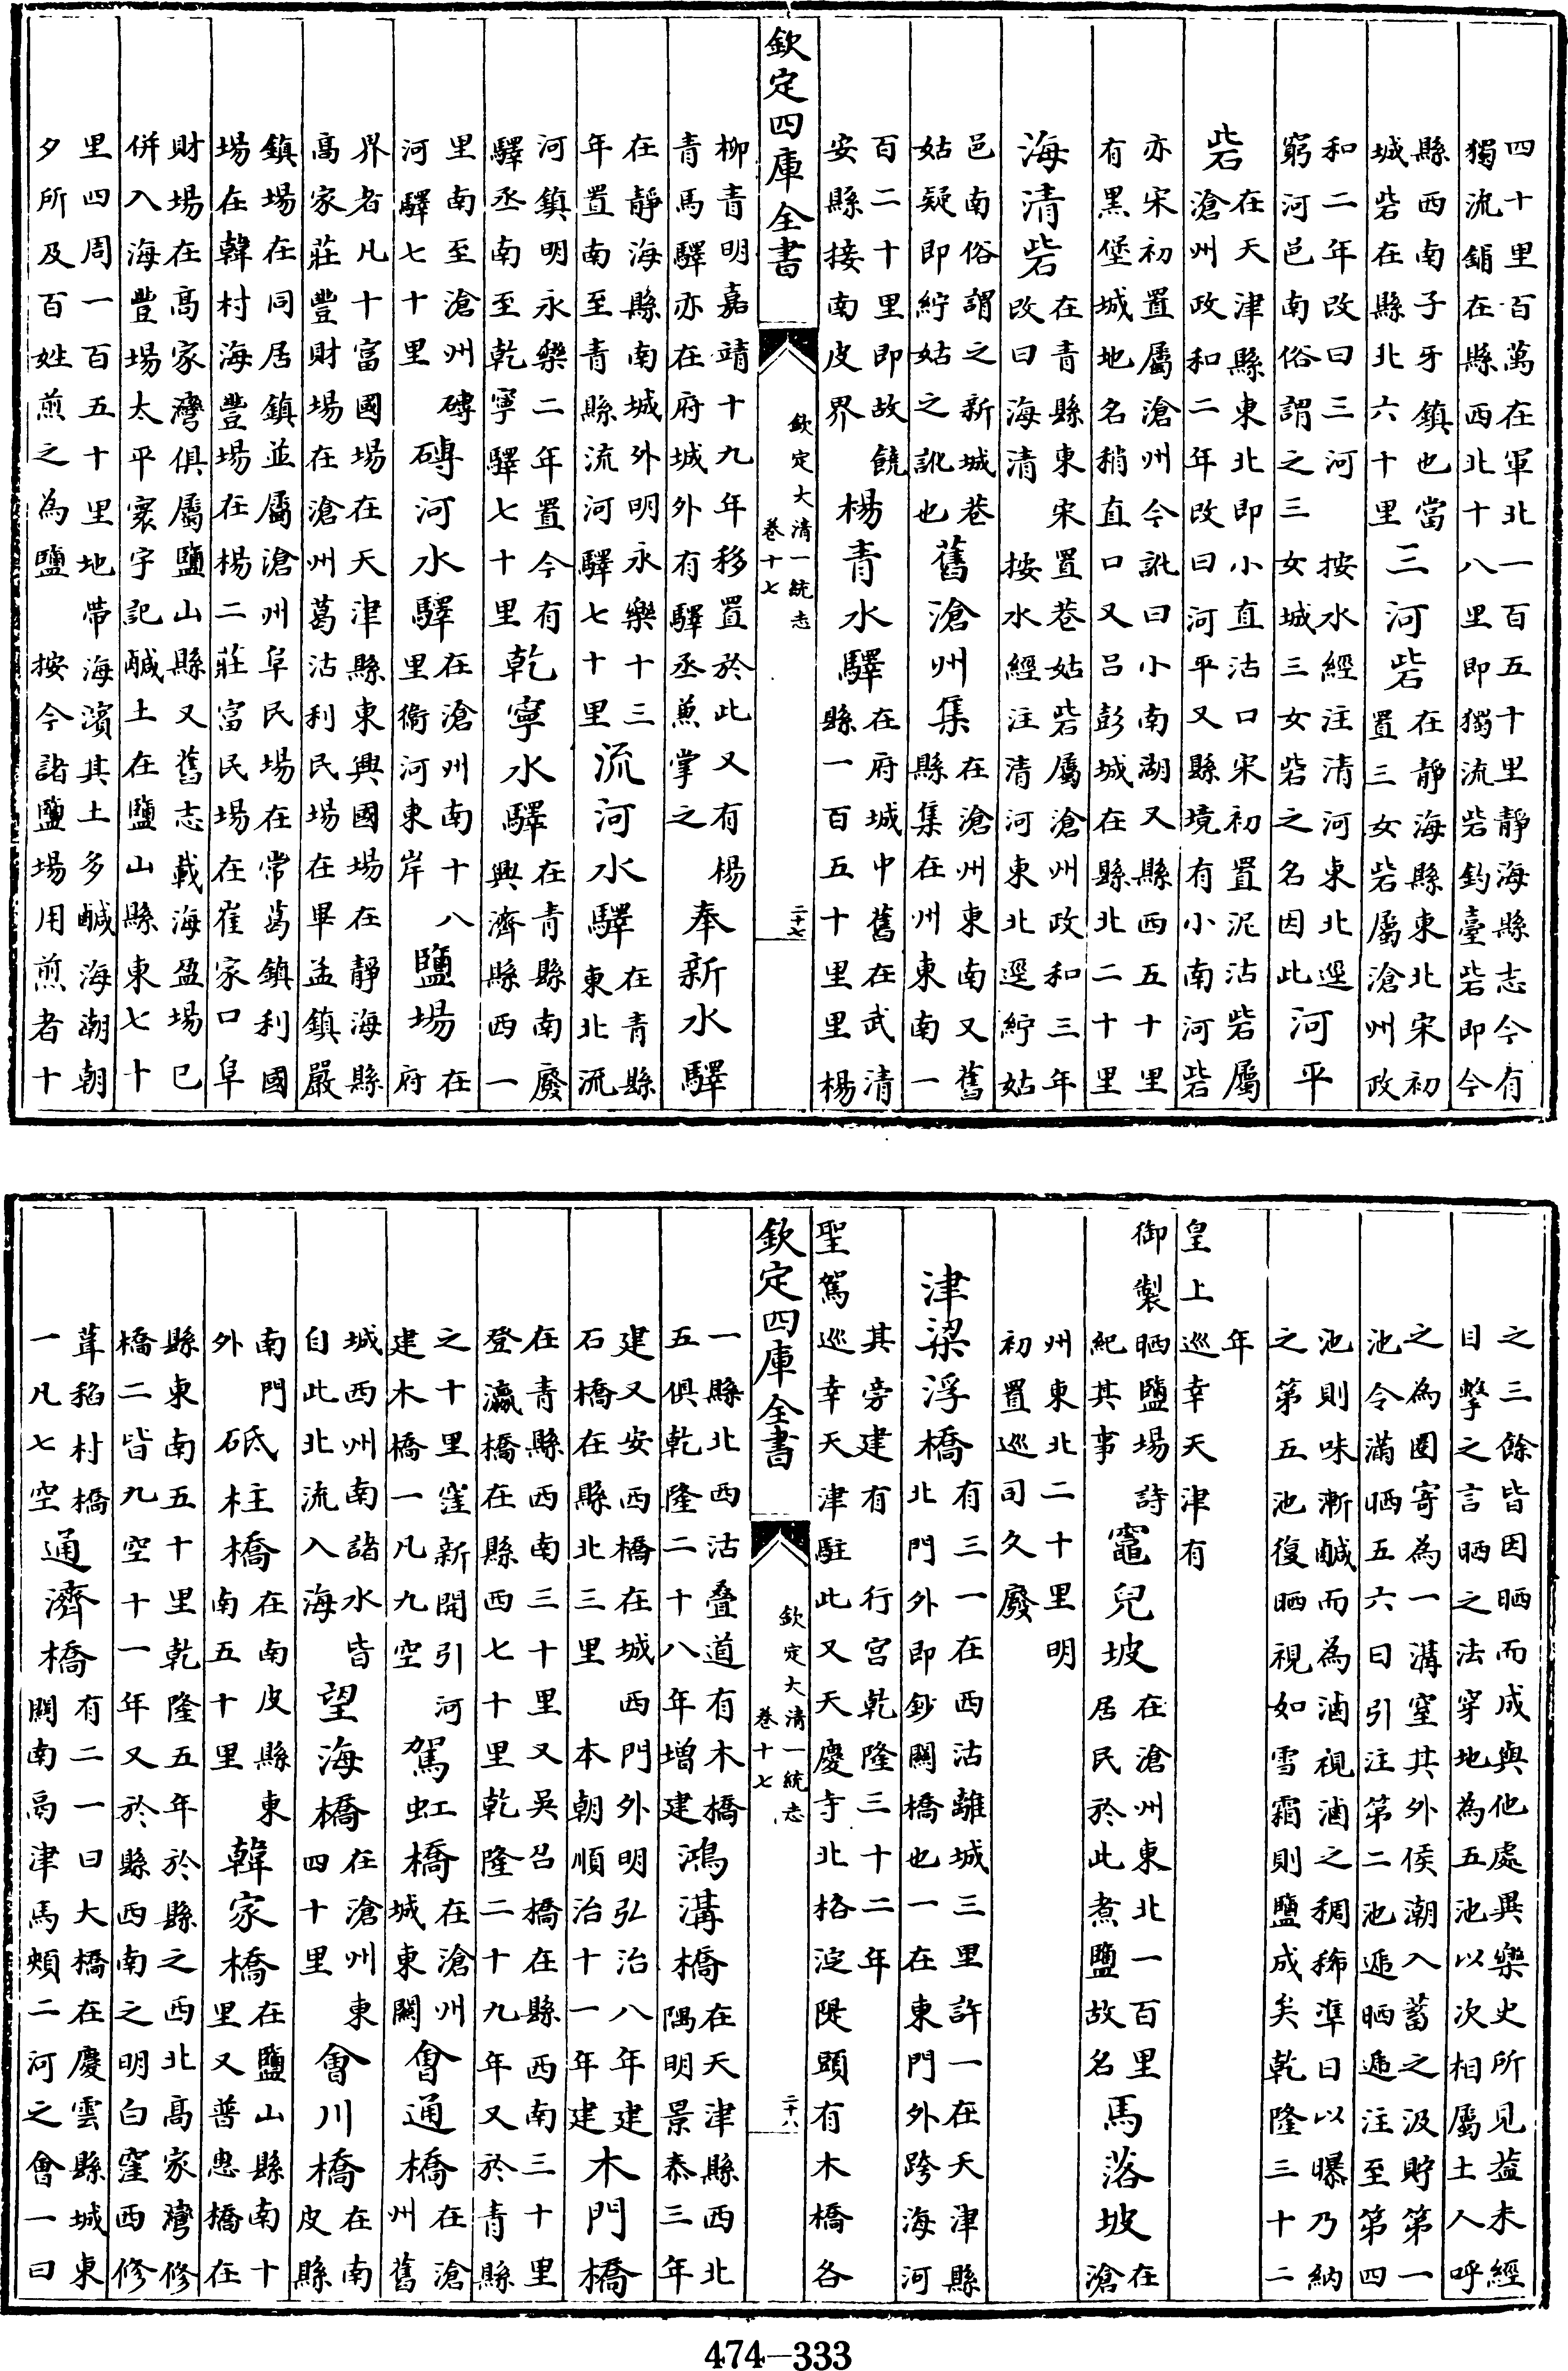 四十里百萬在軍北一百五十里靜海縣志今有
獨流鋪在縣西北十八里即獨流砦釣臺砦即今
縣西南子牙鎮也當
城砦在縣北六十里
三河砦
在靜海縣東北宋初
置三女砦屬滄州政
和二年改曰三河
按水經注清河東北逕
窮河邑南俗謂之三女城三女砦之名因此
河平
砦
在天津縣東北即小直沽口宋初置泥沽砦屬
滄州政和二年改曰河平又縣境有小南河砦
亦宋初置屬滄州今訛曰小南湖又縣西五十里
有黑堡城地名稍直口又呂彭城在縣北二十里
海清砦
在青縣東宋置巷姑砦屬滄州政和三年
改曰海清
按水經注清河東北逕紵姑
邑南俗謂之新城巷
姑疑即紵姑之訛也
舊滄州集
在滄州東南又舊
縣集在州東南一
百二十里即故饒
安縣接南皮界
楊青水驛
在府城中舊在武清
縣一百五十里里楊
欽定四庫全書
欽定大清一統志
卷十七
二十七
柳青明嘉靖十九年移置於此又有楊
青馬驛亦在府城外有驛丞兼掌之
奉新水驛
在靜海縣南城外明永樂十三
年置南至青縣流河驛七十里
流河水驛
在青縣
東北流
河鎮明永樂二年置今有
驛丞南至乾寧驛七十里
乾寧水驛
在青縣南廢
興濟縣西一
里南至滄州磚
河驛七十里
磚河水驛
在滄州南十八
里衛河東岸
鹽場
在
府
界者凡十富國場在天津縣東興國場在靜海縣
高家莊豐財場在滄州葛沽利民場在畢孟鎮嚴
鎮場在同居鎮並屬滄州阜民場在常葛鎮利國
場在韓村海豐場在楊二莊富民場在崔家口阜
財場在高家灣俱屬鹽山縣又舊志載海盈場已
併入海豐場太平寰宇記鹹土在鹽山縣東七十
里四周一百五十里地帶海濱其土多鹹海潮朝
夕所及百姓煎之為鹽
按今諸鹽場用煎者十
之三餘皆因晒而成與他處異樂史所見益未經
目擊之言晒之法穿地為五池以次相屬土人呼
之為圈寄為一溝窒其外侯潮入蓄之汲貯第一
池令滿晒五六日引注第二池遞晒遞注至第四
池則味漸鹹而為滷視滷之稠稀準日以曝乃納
之第五池復晒視如雪霜則鹽成矣乾隆三十二
年
皇上巡幸天津有
御製晒鹽場詩
紀其事
竈兒坡
在滄州東北一百里
居民於此煮鹽故名
馬落坡
在
滄
州東北二十里明
初置巡司久廢
津梁浮橋
有三一在西沽離城三里許一在天津縣
北門外即鈔關橋也一在東門外跨海河
其旁建有行宮乾隆三十二年
聖駕巡幸天津駐此又天慶寺北格淀隄頭有木橋各
欽定四庫全書
欽定大清一統志
卷十七
二十八
一縣北西沽叠道有木橋
五俱乾隆二十八年增建
鴻溝橋
在天津縣西北
隅明景泰三年
建又安西橋在城西門外明弘治八年建
石橋在縣北三里本朝順治十一年建
木門橋
在青縣西南三十里又吳召橋在縣西南三十里
登瀛橋在縣西七十里乾隆二十九年又於青縣
之十里窪新開引河
建木橋一凡九空
駕虹橋
在滄州
城東關
會通橋
在滄
州舊
城西州南諸水皆
自此北流入海
望海橋
在滄州東
四十里
會川橋
在南
皮縣
南門
外
砥柱橋
在南皮縣東
南五十里
韓家橋
在鹽山縣南十
里又普惠橋在
縣東南五十里乾隆五年於縣之西北高家灣修
橋二皆九空十一年又於縣西南之明白窪西修
葺稻村橋
一凡七空
通濟橋
有二一曰大橋在慶雲縣城東
關南鬲津馬頰二河之會一曰
474-333